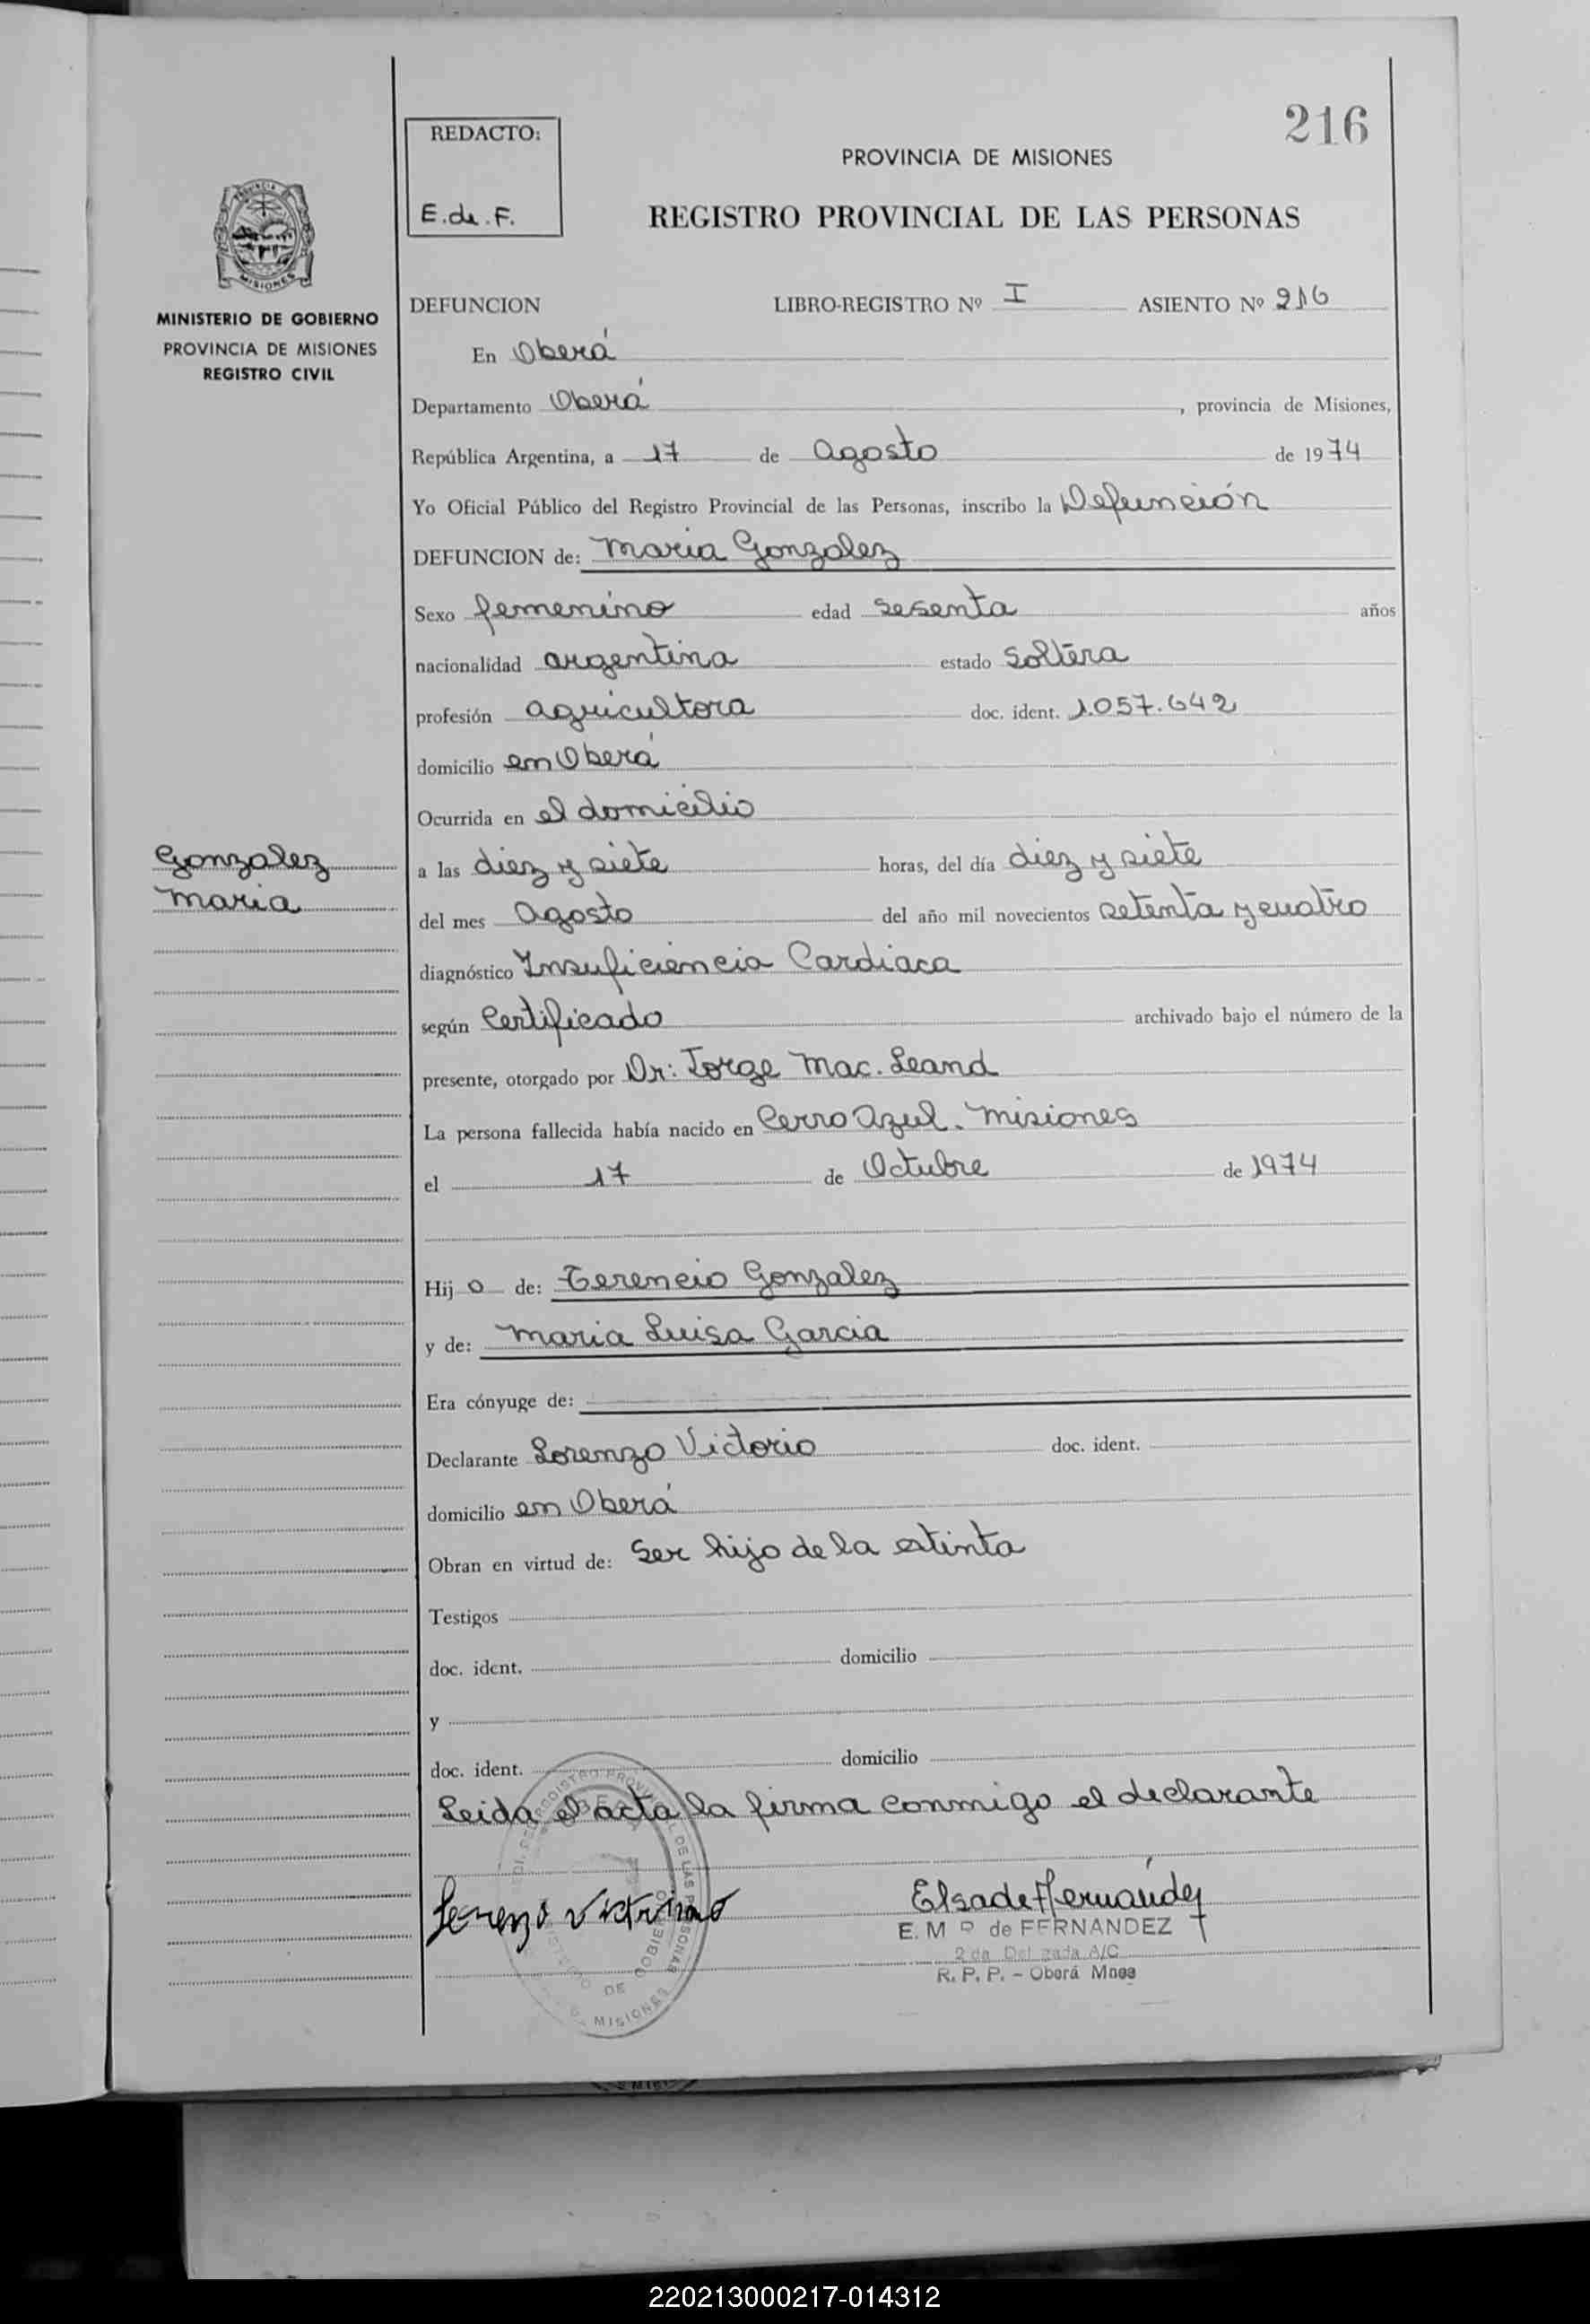 216
REDACTO:
E. de. F.
PROVINCIA DE MISIONES
REGISTRO PROVINCIAL DE LAS PERSONAS
MINISTERIO DE GOBIERNO
PROVINCIA DE MISIONES
REGISTRO CIVIL
DEFUNCION LIBRO-REGISTRO Nº I ASIENTO Nº 216
En Oberá
Departamento Oberá, provincia de Misiones,
República Argentina, a 17 de Agosto de 1974
Yo Oficial Público del Registro Provincial de las Personas, inscribo la Defunción
DEFUNCION de: Maria Gonzalez
Sexo femenino edad sesenta años
nacionalidad argentina estado Soltera
profesión agricultora doc. ident. 1.057.642
domicilio en Oberá
Ocurrida en el domicilio
Gonzalez
Maria
a las diez y siete horas, del día diez y siete
del mes Agosto del año mil novecientos setenta y cuatro
diagnóstico Insuficiencia Cardiaca
según Certificado archivado bajo el número de la
presente, otorgado por Dr: Jorge Mac. Leand
La persona fallecida había nacido en Cerro Azul. Misiones
el 17 de Octubre de 1974
Hij o de: Terencio Gonzalez
y de: Maria Luisa Garcia
Era cónyuge de:
Declarante Lorenzo Victorio doc. ident.
domicilio en Oberá
Obran en virtud de: Ser hijo de la estinta
Testigos
doc. ident. domicilio
y
doc. ident. domicilio
Leida el acta la firma conmigo el declarante
Elsa de Fernández
E. M de FERNANDEZ
R. P. P. - Oberá Mnes
DE
MISIONES
220213000217-014312